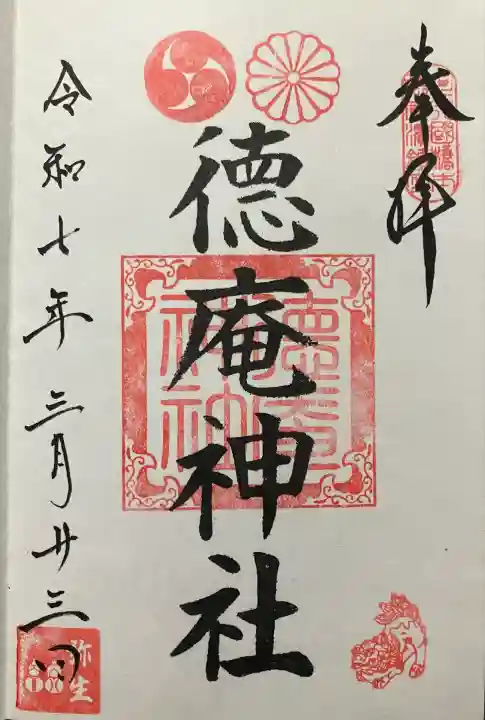 奉拝
徳庵神社
徳菴
神社
令和七年三月廿三日
弥生